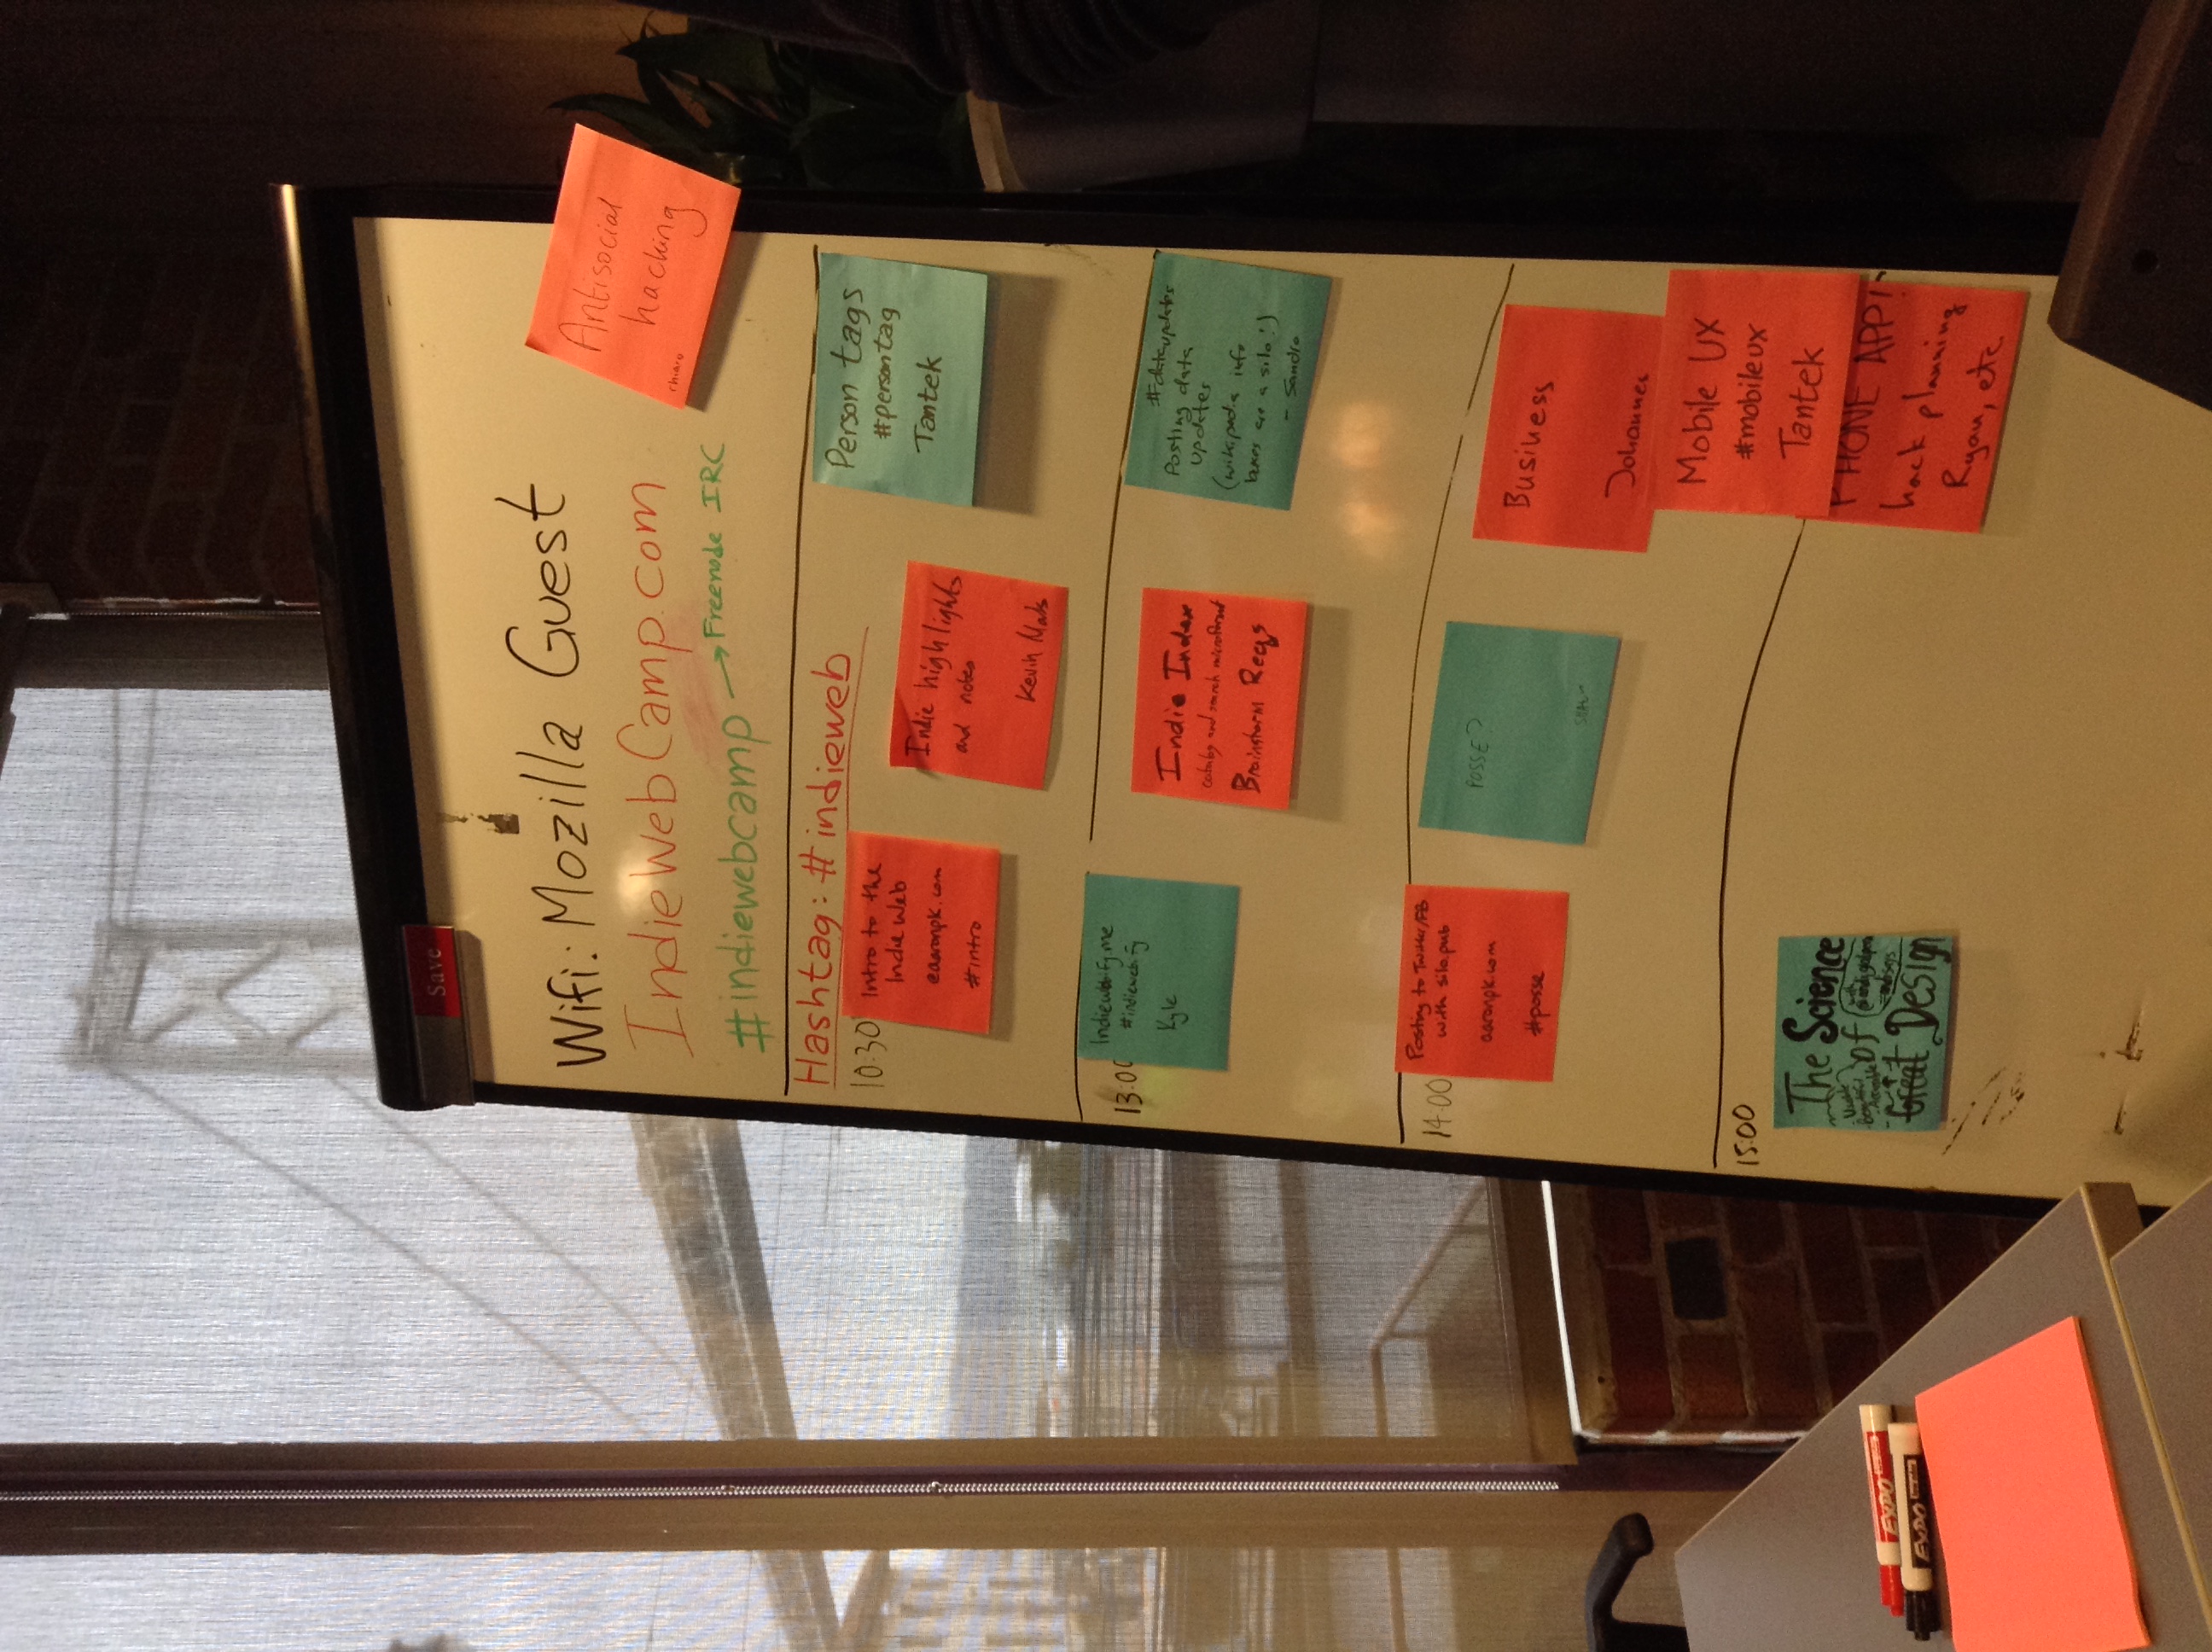 Save
Wifi: Mozilla Guest
IndieWebCamp.com
#indiewebcamp → Freenode IRC
Antisocial
hacking
Hashtag: #indieweb
10:30
Intro to the
Indie Web
@aaronpk.com
#intro
Indie highlights
and notes
Kevin Marks
Person tags
#persontag
Tantek
13:00
Indiewebify.me
#indiewebify
Kyle
Indie Index
catalog and search microformat
Brainstorm Reqs
#dataupdates
Posting data
updates
(wikipedia info
boxes are a silo!)
- Sandro
14:00
Posting to Twitter/FB
with silo.pub
aaronpk.com
#posse
POSSE?
Business
Johannes
Mobile UX
#mobileux
Tantek
15:00
The Science
of
Usable
Beautiful
with
Great Design
PHONE APP!
hack planning
Ryan, etc
EXPO
EXPO